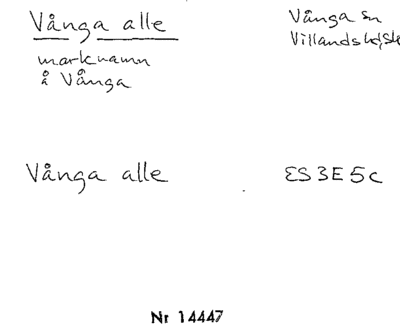 Vånga alle
Vånga sn
Villands hd, Sk
marknamn
å Vånga
Vånga alle
ES 3E 5c
Nr 14447